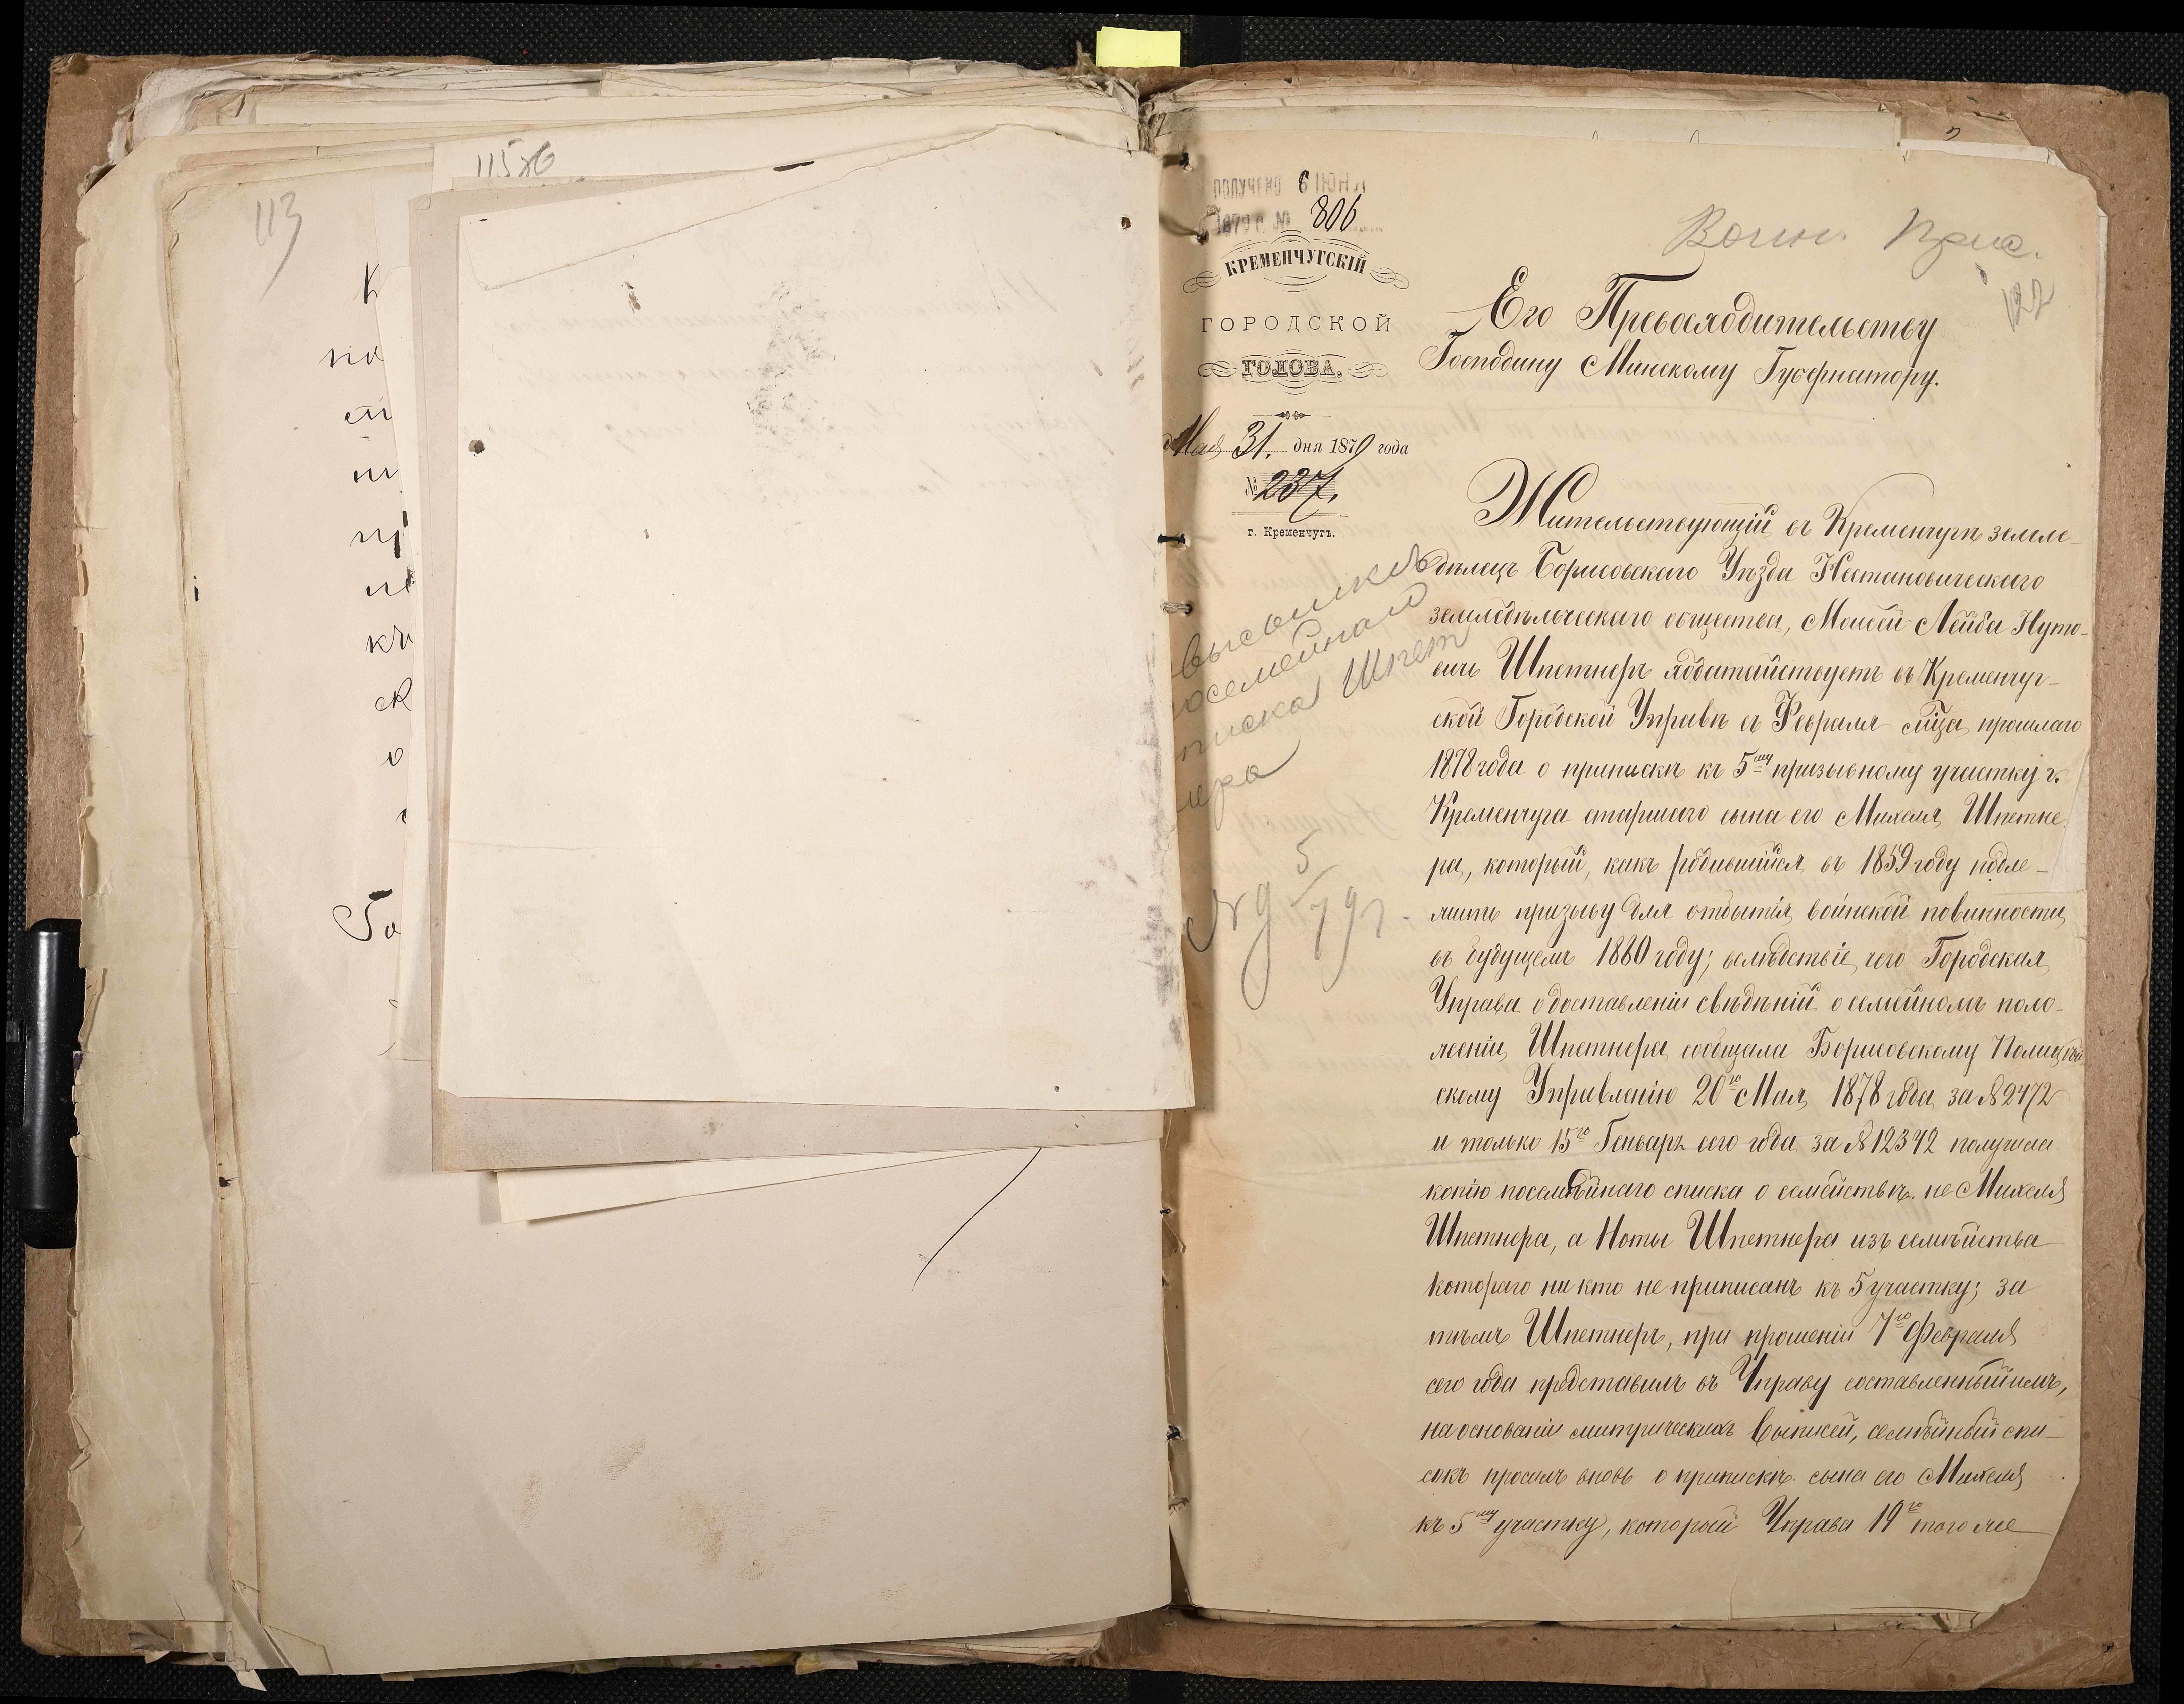 113
115 об
К
по
ст
ш
пр
не
къ
ск
о
Го
ПОЛУЧЕНО 6 ІЮНЯ
1879 г. № 806
КРЕМЕНЧУГСКІЙ
ГОРОДСКОЙ
ГОЛОВА.
Мая 31. дня 1879 года
№ 237.
г. Кременчугъ.
Воин. Прис.
122
Его Превосходительству
Господину Минскому Губернатору.
Жительствующій въ Кременчугѣ земле-
дѣлецъ Борисовскаго Уѣзда Нестановическаго
земледѣльческаго общества, Мовсей Лейба Нуто-
вичъ Шпетнеръ ходатайствуетъ въ Кременчуг-
ской Городской Управѣ съ Февраля м̃ца прошлаго
1878 года о припискѣ къ 5му призывному участку г.
Кременчуга старшаго сына его Михеля Шпетне
ра, который, какъ родившійся въ 1859 году подле-
житъ призыву для отбытія воинской повинности
въ будущемъ 1880 году; вслѣдствіе чего Городская
Управа о доставленіи свѣдѣній о семейномъ поло-
женіи Шпетнера сообщала Борисовскому Полицей
скому Управленію 20го Мая 1878 года за № 2472
и только 15го Генваря сего года за № 12342 получила
копію посемѣйнаго списка о семействѣ не Михеля
Шпетнера, а Ноты Шпетнера изъ семѣйства
котораго ни кто не приписанъ къ 5 участку; за
тѣмъ Шпетнеръ, при прошеніи 7го Февраля
сего года представилъ въ Управу составленный имъ,
на основаніи митрическихъ выписей, семѣйный спи-
сокъ просилъ вновь о припискѣ сына его Михеля
къ 5му участку, который Управа 19го того же
высылкѣ
посемейнаго
списка Шпет
нера
№ 9 5/79 г.